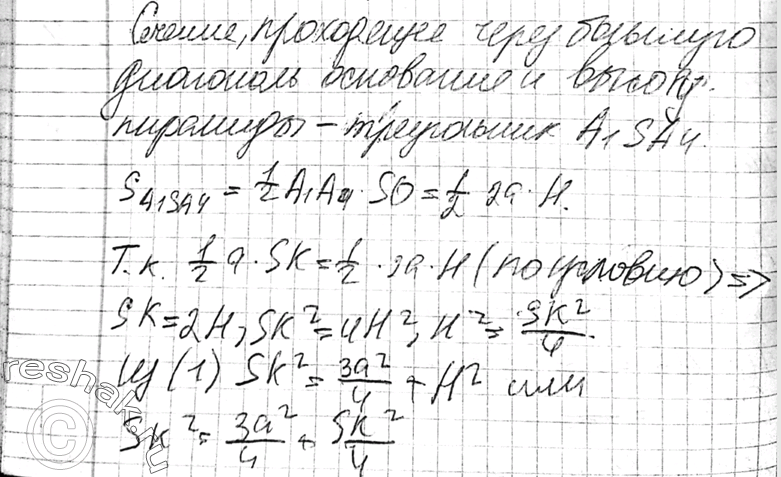 Сечение, проходящее через большую
диагональ основания и высоту
пирамиды – треугольник A₁SA₄.
S_{A₁SA₄} = 1/2 A₁A₄ · SO = 1/2 2a · H.
Т.к. 1/2 a · SK = 1/2 · 2a · H (по условию) =>
SK = 2H, SK² = 4H², H² = SK²/4.
Из (1) SK² = 3a²/4 + H² или
SK² = 3a²/4 + SK²/4
reshak.ru
©